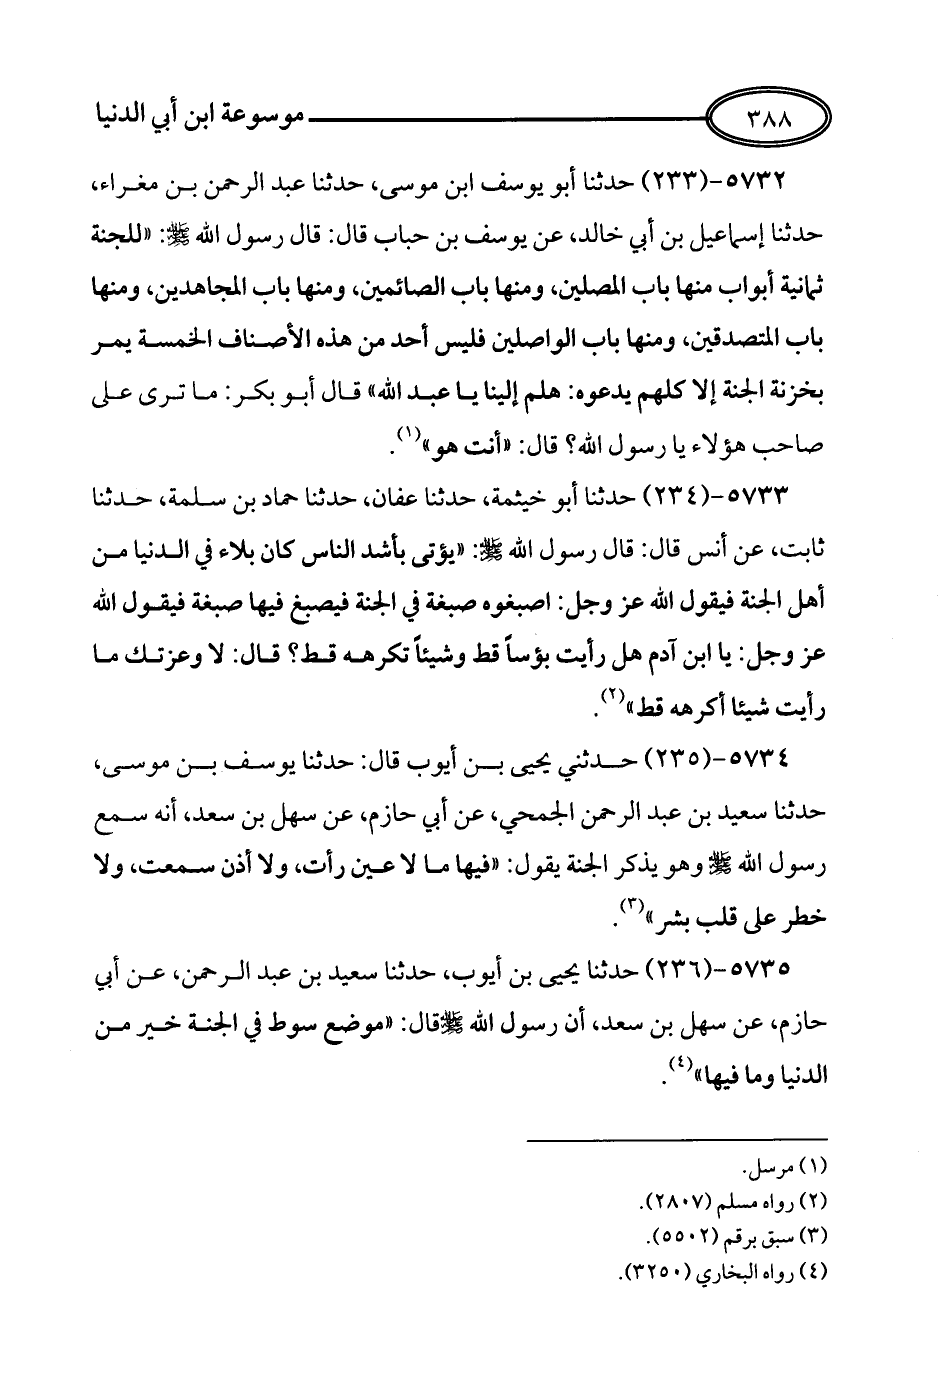 ٣٨٨ موسوعة ابن أبي الدنيا
٥٧٣٢-(٢٣٣) حدثنا أبو يوسف ابن موسى، حدثنا عبد الرحمن بن مغراء،
حدثنا إسماعيل بن أبي خالد، عن يوسف بن حباب قال: قال رسول الله ﷺ: «للجنة
ثمانية أبواب منها باب المصلين، ومنها باب الصائمين، ومنها باب المجاهدين، ومنها
باب المتصدقين، ومنها باب الواصلين فليس أحد من هذه الأصناف الخمسة يمر
بخزنة الجنة إلا كلهم يدعوه: هلم إلينا يا عبد الله» قال أبو بكر: ما ترى على
صاحب هؤلاء يا رسول الله؟ قال: «أنت هو»(١).
٥٧٣٣-(٢٣٤) حدثنا أبو خيثمة، حدثنا عفان، حدثنا حماد بن سلمة، حدثنا
ثابت، عن أنس قال: قال رسول الله ﷺ: «يؤتى بأشد الناس كان بلاء في الدنيا من
أهل الجنة فيقول الله عز وجل: اصبغوه صبغة في الجنة فيصبغ فيها صبغة فيقول الله
عز وجل: يا ابن آدم هل رأيت بؤساً قط وشيئاً تكرهه قط؟ قال: لا وعزتك ما
رأيت شيئا أكرهه قط»(٢).
٥٧٣٤-(٢٣٥) حدثني يحيى بن أيوب قال: حدثنا يوسف بن موسى،
حدثنا سعيد بن عبد الرحمن الجمحي، عن أبي حازم، عن سهل بن سعد، أنه سمع
رسول الله ﷺ وهو يذكر الجنة يقول: «فيها ما لا عين رأت، ولا أذن سمعت، ولا
خطر على قلب بشر»(٣).
٥٧٣٥-(٢٣٦) حدثنا يحيى بن أيوب، حدثنا سعيد بن عبد الرحمن، عن أبي
حازم، عن سهل بن سعد، أن رسول الله ﷺ قال: «موضع سوط في الجنة خير من
الدنيا وما فيها»(٤).
(١) مرسل.
(٢) رواه مسلم (٢٨٠٧).
(٣) سبق برقم (٥٥٠٢).
(٤) رواه البخاري (٣٢٥٠).